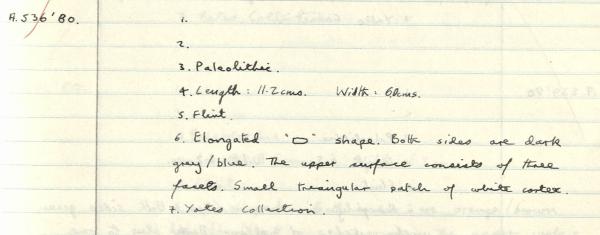 A.536'80.
1.
2.
3. Paleolithic.
4. Length : 11.2cms. Width : 6.0cms.
5. Flint.
6. Elongated '▭' shape. Both sides are dark
grey/blue. The upper surface consists of three
facets. Small triangular patch of white cortex.
7. Yates Collection.